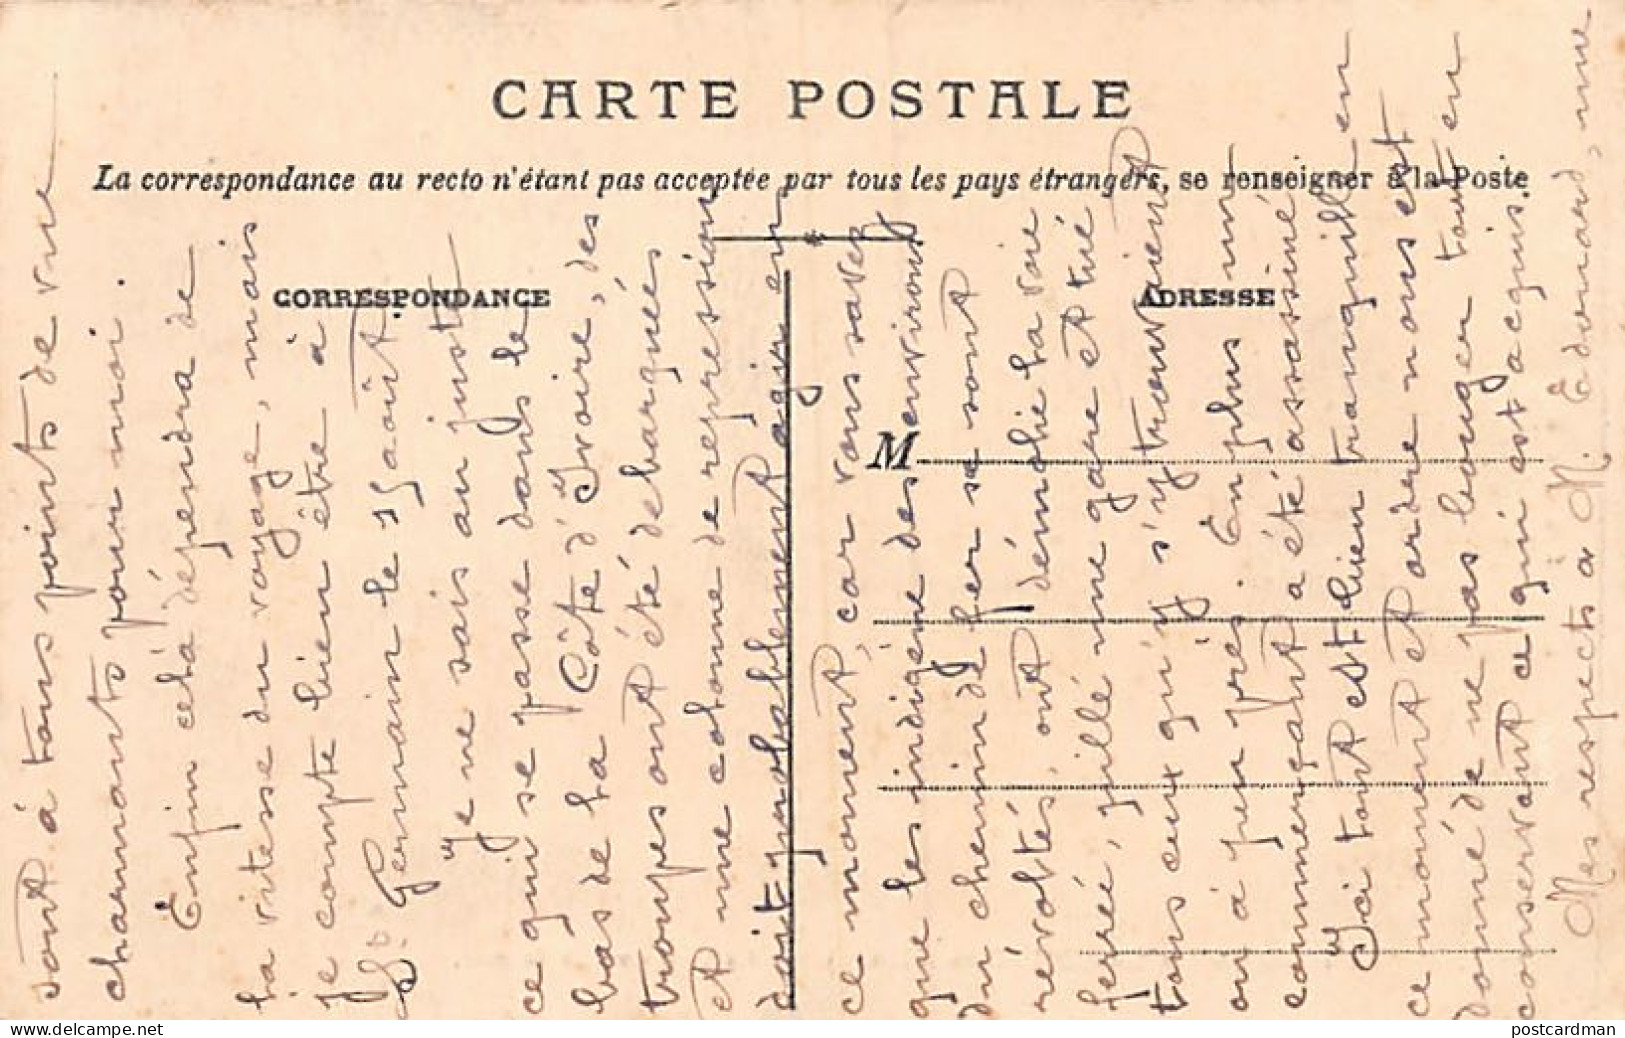 CARTE POSTALE
La correspondance au recto n'étant pas acceptée par tous les pays étrangers, se renseigner à la Poste
CORRESPONDANCE
ADRESSE
M
sont à tous points de vue
charmants pour moi.
Enfin celà dépendra de
la vitesse du voyage, mais
je compte bien être à
St Germain le 15 août.
Je ne sais au juste
ce qui se passe dans le
bas de la Côte d'Ivoire, des
troupes ont été debarquées
et une colonne de repression
doit probablement agir en
ce moment, car vous savez
que les indigène des environs
du chemin de fer se sont
révoltés, ont démolie la voie
ferrée, pillé une gare et tué
tous ceux qu'y s'y trouvaient
ou à peu près. En plus un
commerçant a été assassiné
Ici tout est bien tranquille en
ce moment et ordre nous est
donné de ne pas bouger tout en
conservant ce qui est acquis.
Mes respects à M. Edouard, une
postcardman
www.delcampe.net